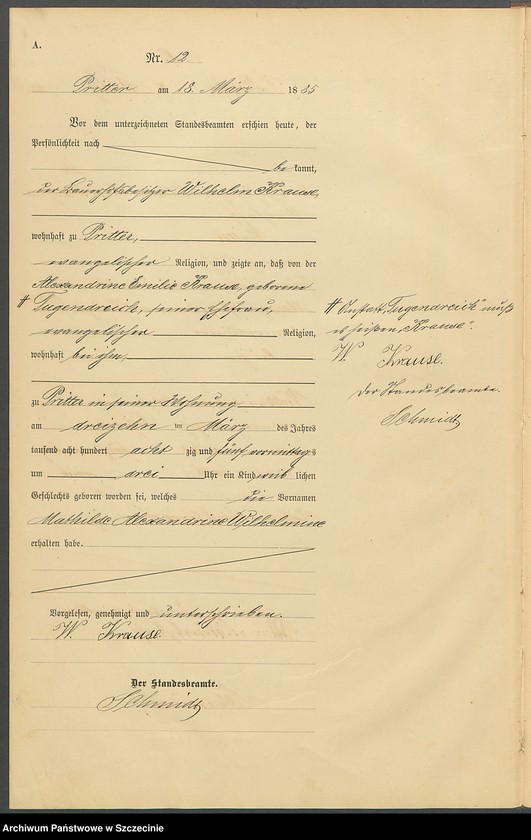 A.
Nr. 12
Pritter am 18. März 1885
Vor dem unterzeichneten Standesbeamten erschien heute, der
Persönlichkeit nach
be kannt,
der Bauerhofsbesitzer Wilhelm Krause,
wohnhaft zu Pritter,
evangelischer Religion, und zeigte an, daß von der
Alexandrine Emilie Krause, geborene
# Tugendreich, seiner Ehefrau,
evangelischer Religion,
wohnhaft bei ihm,
zu Pritter in seiner Wohnung
am dreizehn ten März des Jahres
tausend acht hundert acht zig und fünf vormittags
um drei Uhr ein Kind weib lichen
Geschlechts geboren worden sei, welches die Vornamen
Mathilde Alexandrine Wilhelmine
erhalten habe.
Vorgelesen, genehmigt und unterschrieben.
W. Krause.
Der Standesbeamte.
Schmidt
# Anstatt „Tugendreich" muß
es heißen „Krause".
W. Krause.
Der Standesbeamte.
Schmidt
Archiwum Państwowe w Szczecinie